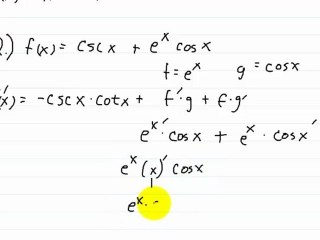 2.) f(x) = cscx + e^x cosx
f = e^x   g = cosx
f'(x) = -cscx·cotx + f'·g + f·g'
e^x'·cosx + e^x·cosx'
e^x(x)' cosx
1
e^x·